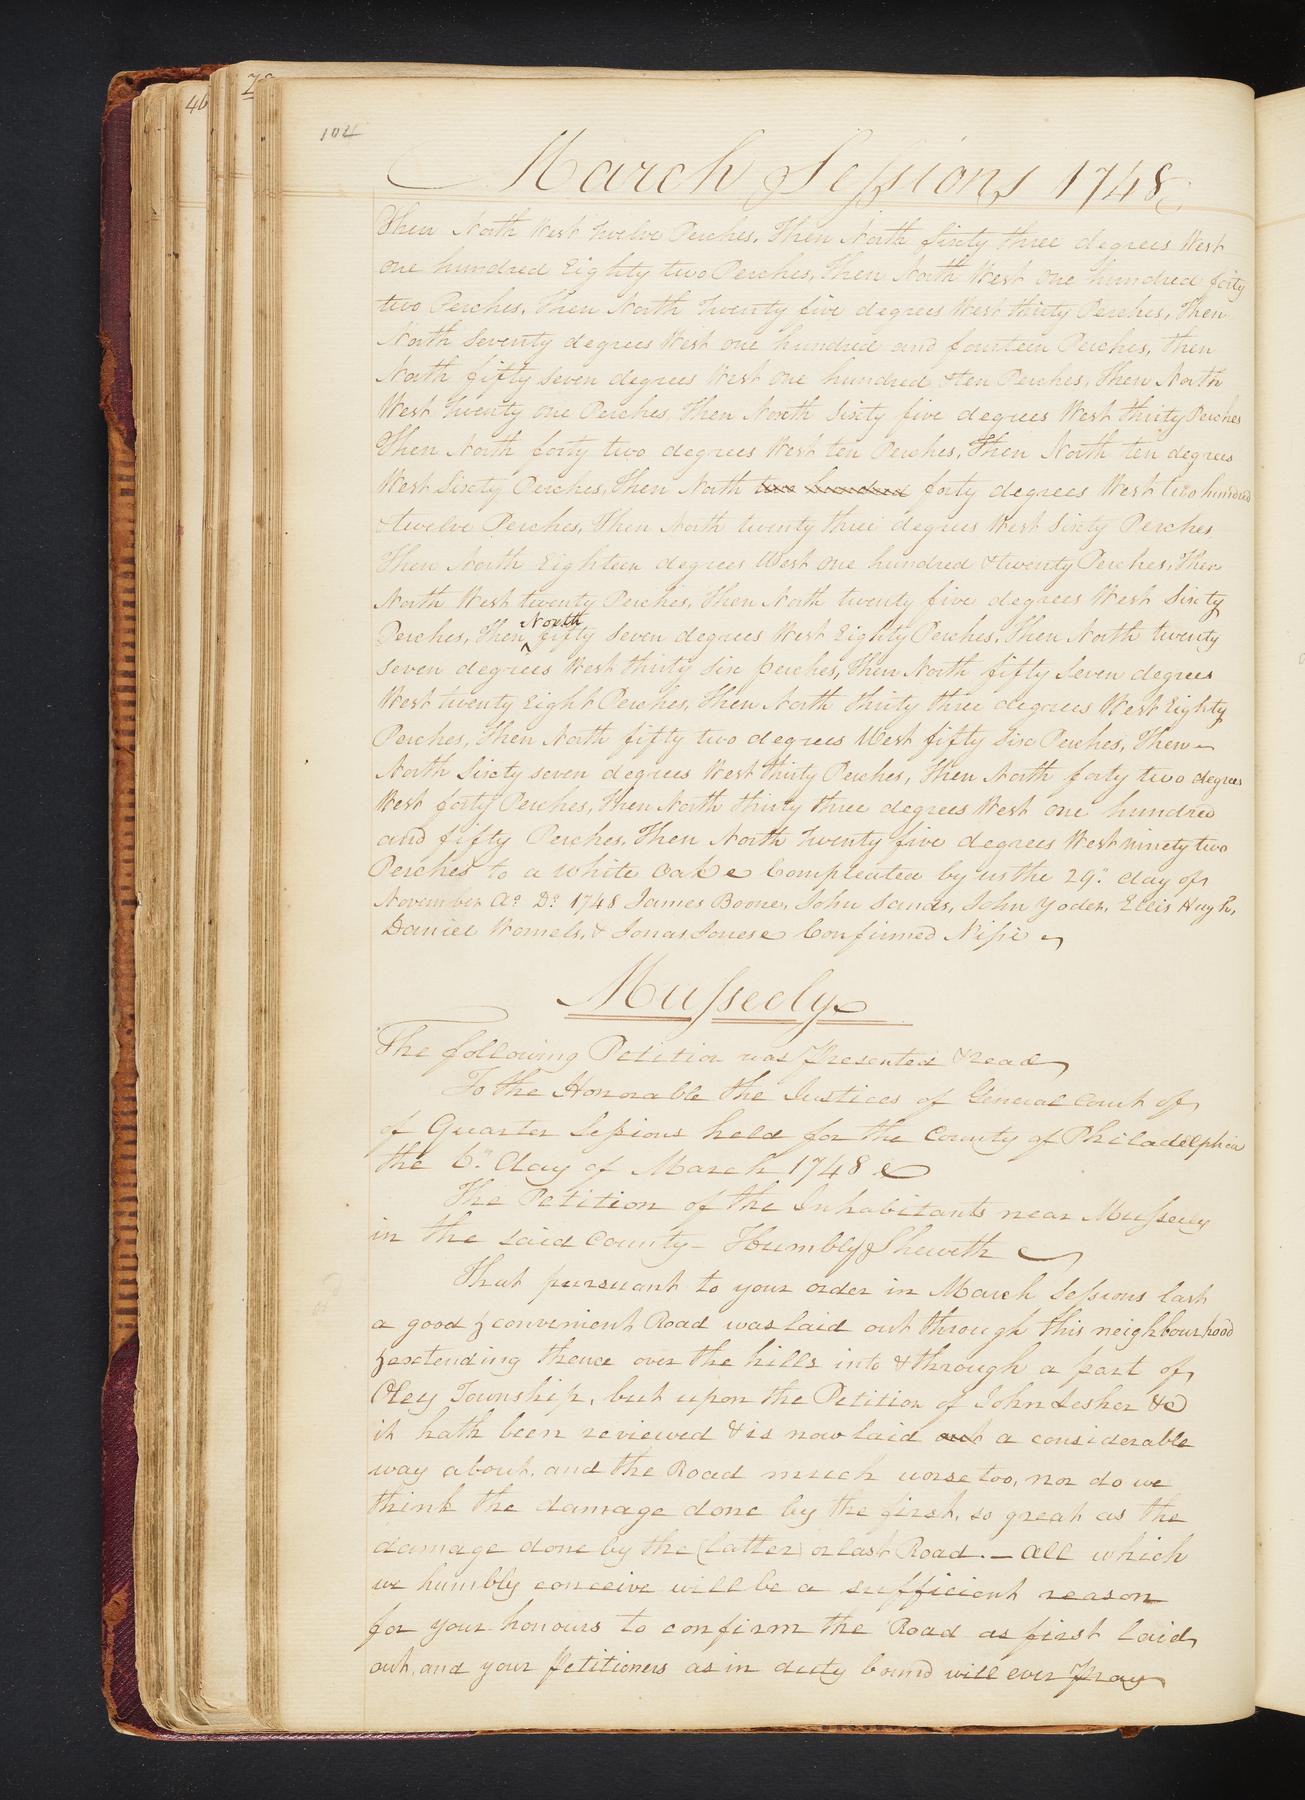 46
104
March Sessions 1748
Then North West Twelve Perches, Then North sixty three degrees West
one hundred Eighty two Perches, Then North West one hundred forty
two Perches, Then North Twenty five degrees West thirty Perches, Then
North seventy degrees West one hundred and fourteen Perches, then
North fifty seven degrees West one hundred & ten Perches, Then North
West Twenty one Perches Then North Sixty five degrees West thirty Perches
Then North forty two degrees West ten Perches, Then North ten degrees
West Sixty Perches, Then North two hundred forty degrees West two hundred
& twelve Perches, Then North twenty three degrees West Sixty Perches
Then North Eighteen degrees West one hundred & twenty Perches, Then
North West twenty Perches, Then North twenty five degrees West Sixty
North
Perches, Then ^ fifty seven degrees West Eighty Perches, Then North twenty
seven degrees West thirty six perches, Then North fifty seven degrees
West twenty Eight Perches, Then North thirty three degrees West Eighty
Perches, Then North fifty two degrees West fifty six Perches, Then
North Sixty seven degrees West thirty Perches, Then North forty two degrees
West forty Perches, Then North thirty three degrees West one hundred
and fifty Perches, Then North Twenty five degrees West ninety two
Perches to a white Oak Compleated by us the 29th day of
November Ao Do 1748 James Boone, John Sands, John Yoder, Ellis Hugh,
Daniel Womels, & Jonas Jones Confirmed Nisi
Mussecly
The following Petition was presented & read
To the Honorable the Justices of General Court of
of Quarter Sessions held for the County of Philadelphia
the 6th day of March 1748
The Petition of the Inhabitants near Mussecly
in the said County - Humbly Sheweth
That pursuant to your order in March Sessions last
a good & convenient Road was laid out through this neighbourhood
& extending thence over the hills into & through a part of
Oley Township, but upon the Petition of John Lesher &c
it hath been reviewed & is now laid out a considerable
way about, and the Road much worse too, nor do we
think the damage done by the first, so great as the
damage done by the (latter) or last Road. - All which
we humbly conceive will be a sufficient reason
for your honours to confirm the Road as first laid
out, and your Petitioners as in duty bound will ever Pray